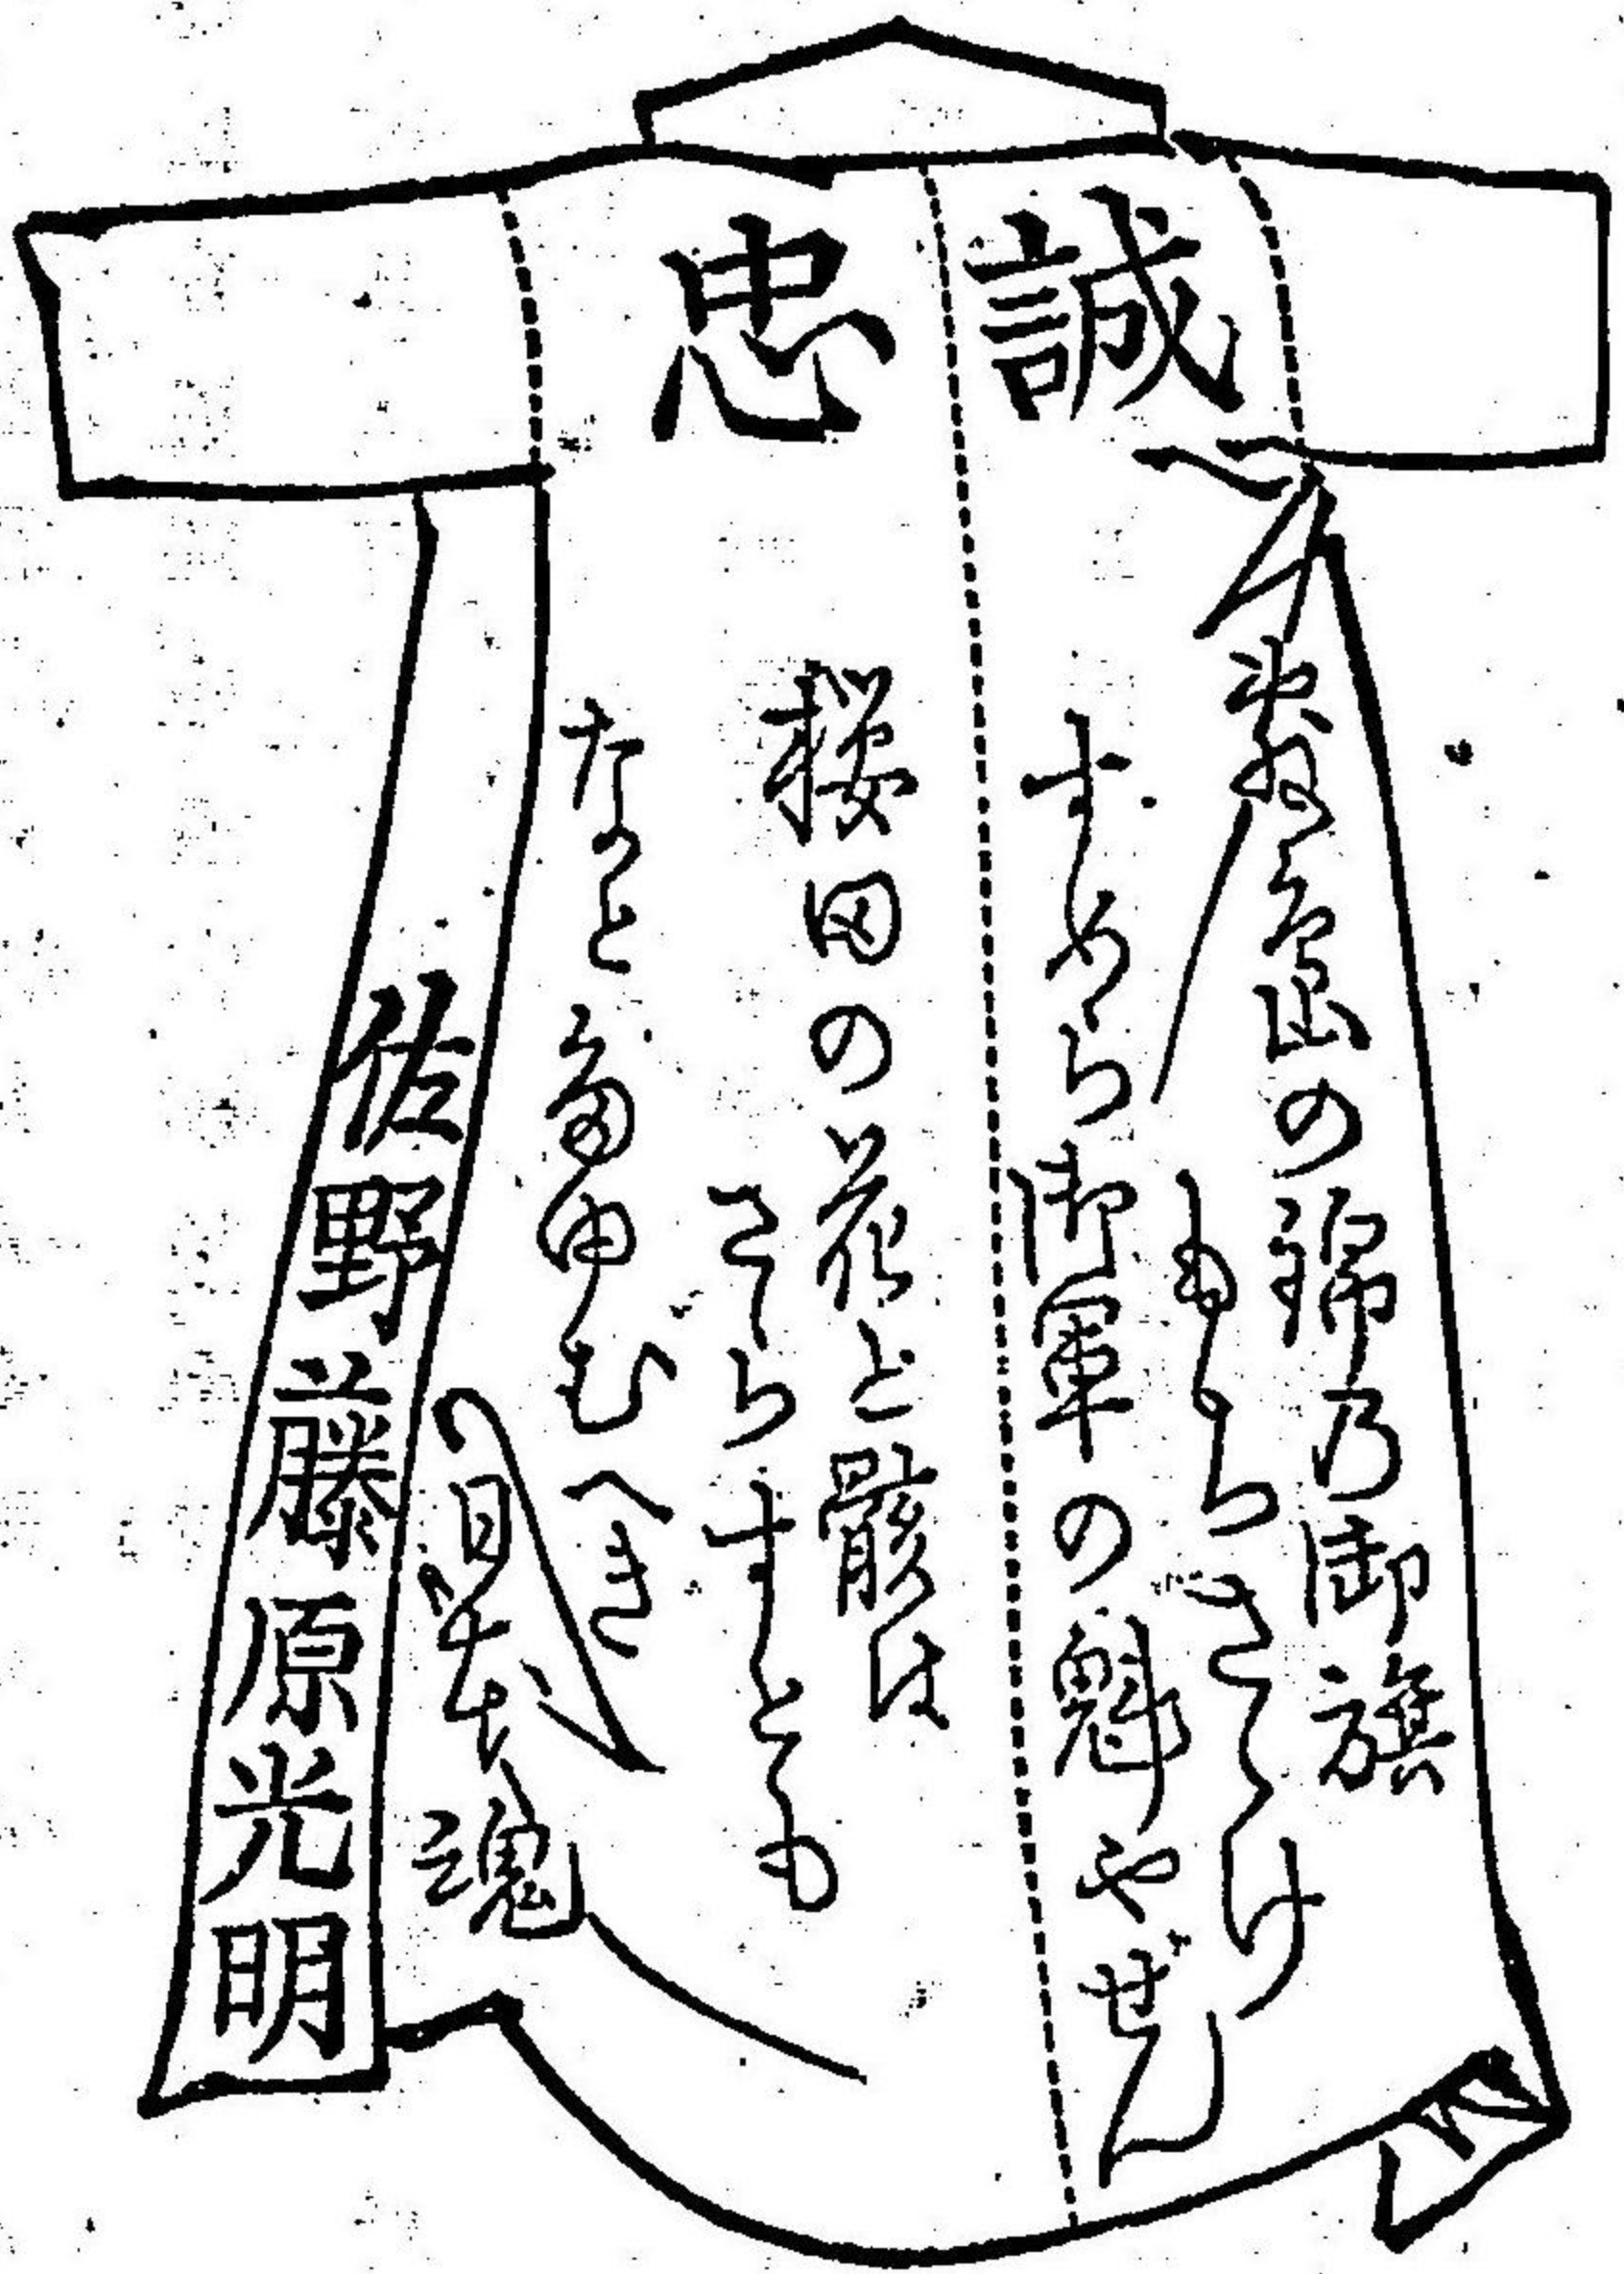 誠忠
敷島の錦乃御旗
もちさゝけ
すめら御軍の魁やぜん
桜田の花と骸は
さらすとも
なと
むへき
日本魂
佐野藤原光明